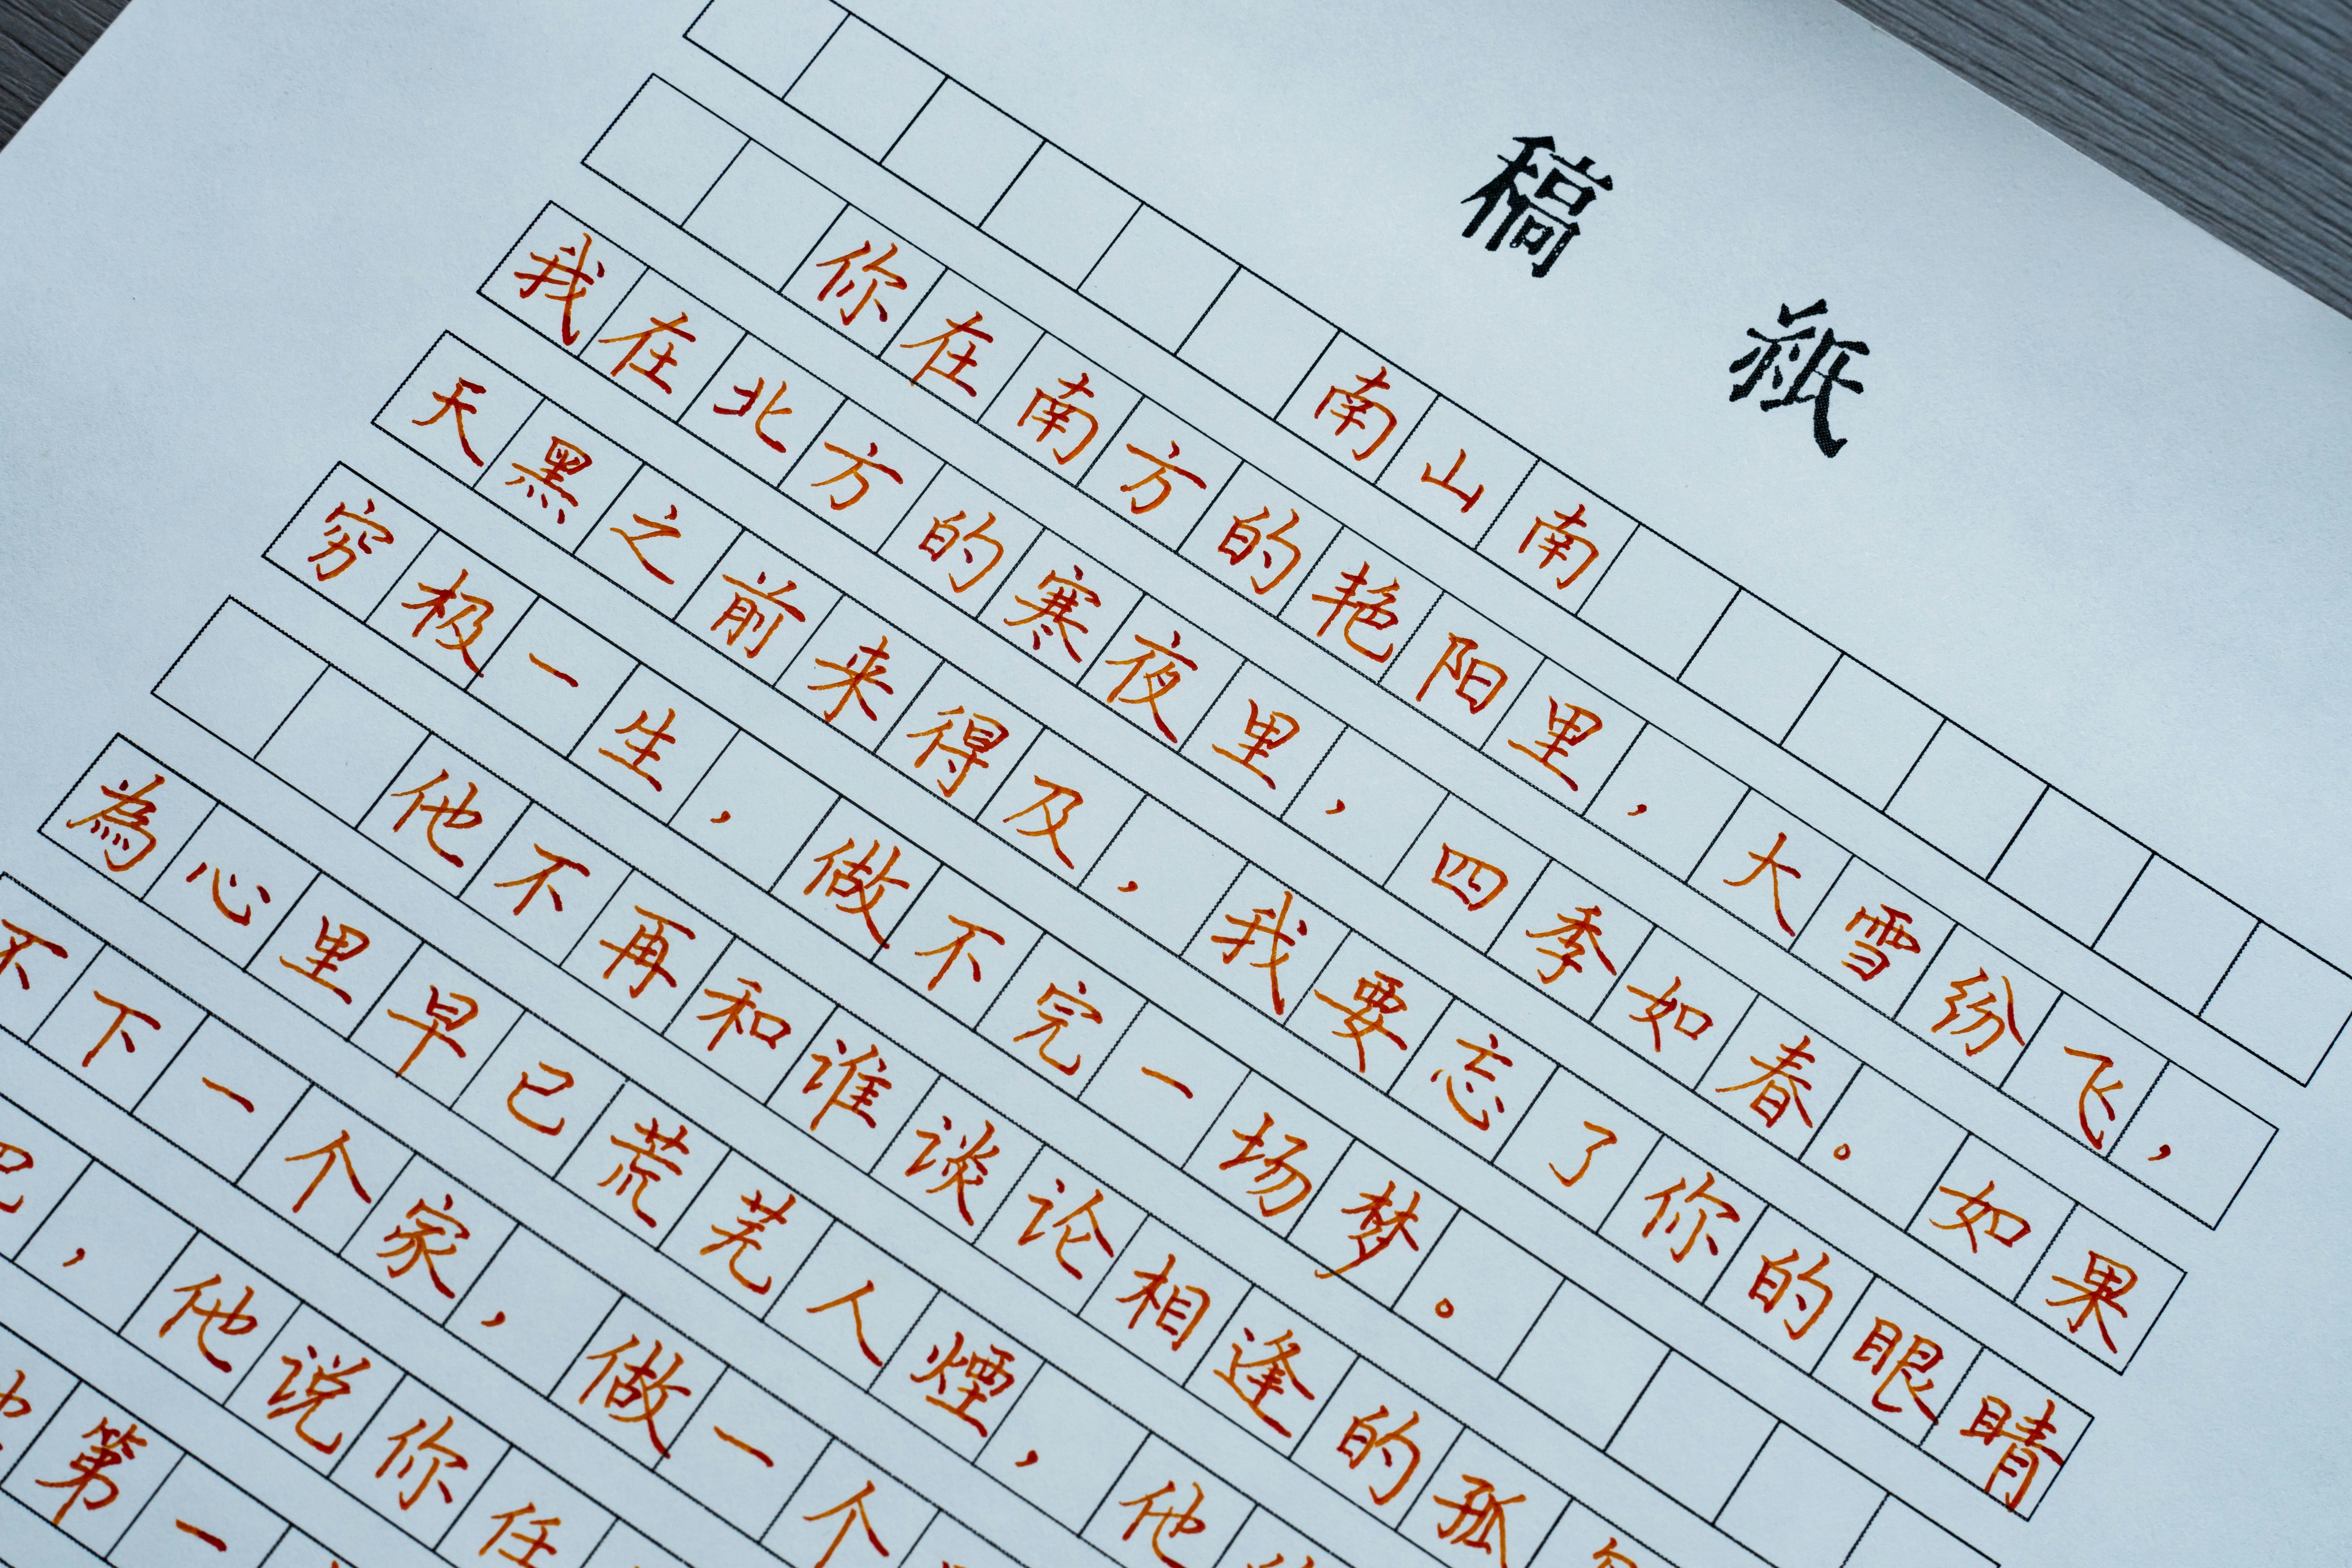 稿纸
南山南
你在南方的艳阳里，大雪纷飞，
我在北方的寒夜里，四季如春。如果
天黑之前来得及，我要忘了你的眼睛
穷极一生，做不完一场梦。
他不再和谁谈论相逢的孤
為心里早已荒芜人煙，他
不下一个家，做一个
，他说你任
第一